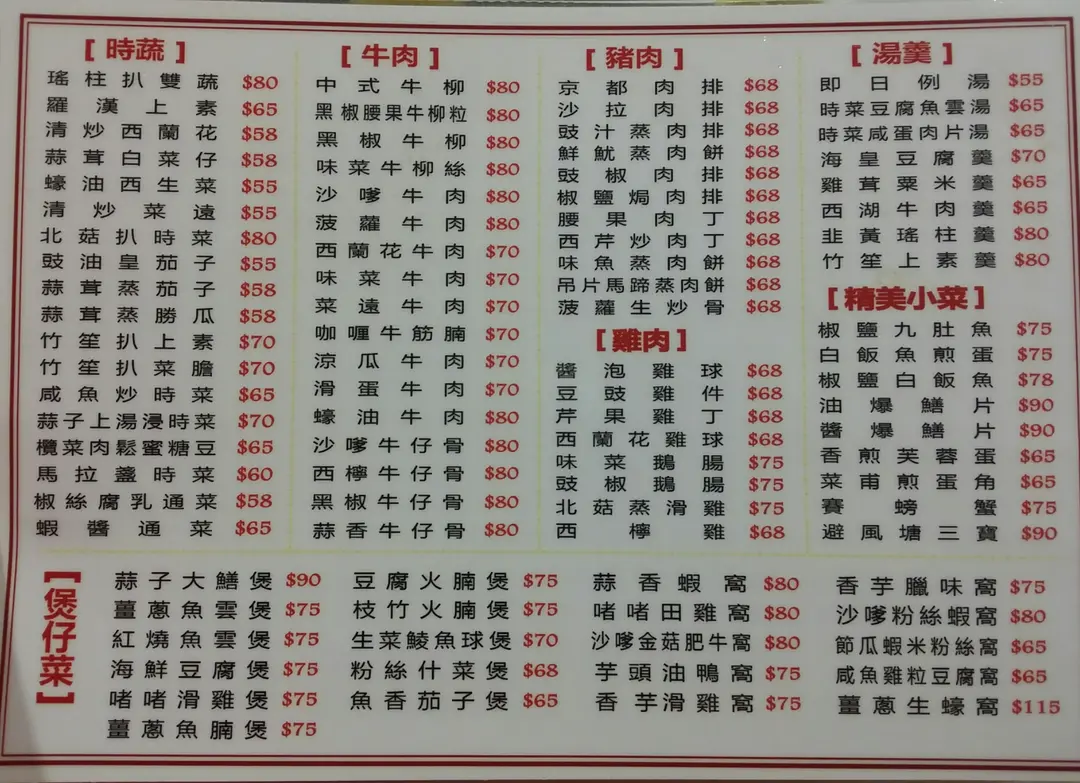 [ 時蔬 ]
瑤柱扒雙蔬 $80
羅漢上素 $65
清炒西蘭花 $58
蒜茸白菜仔 $58
蠔油西生菜 $55
清炒菜遠 $55
北菇扒時菜 $80
豉油皇茄子 $55
蒜茸蒸茄子 $58
蒜茸蒸勝瓜 $58
竹笙扒上素 $70
竹笙扒菜膽 $70
咸魚炒時菜 $65
蒜子上湯浸時菜 $70
欖菜肉鬆蜜糖豆 $65
馬拉盞時菜 $60
椒絲腐乳通菜 $58
蝦醬通菜 $65
[ 牛肉 ]
中式牛柳 $80
黑椒腰果牛柳粒 $80
黑椒牛柳 $80
味菜牛柳絲 $80
沙嗲牛肉 $80
菠蘿牛肉 $80
西蘭花牛肉 $70
味菜牛肉 $70
菜遠牛肉 $70
咖喱牛筋腩 $70
涼瓜牛肉 $70
滑蛋牛肉 $70
蠔油牛肉 $80
沙嗲牛仔骨 $80
西檸牛仔骨 $80
黑椒牛仔骨 $80
蒜香牛仔骨 $80
[ 豬肉 ]
京都肉排 $68
沙拉肉排 $68
豉汁蒸肉排 $68
鮮魷蒸肉餅 $68
豉椒肉排 $68
椒鹽焗肉排 $68
腰果肉丁 $68
西芹炒肉丁 $68
味魚蒸肉餅 $68
吊片馬蹄蒸肉餅 $68
菠蘿生炒骨 $68
[ 雞肉 ]
醬泡雞球 $68
豆豉雞件 $68
芹果雞丁 $68
西蘭花雞球 $68
味菜鵝腸 $75
豉椒鵝腸 $75
北菇蒸滑雞 $75
西檸雞 $68
[ 湯羹 ]
即日例湯 $55
時菜豆腐魚雲湯 $65
時菜咸蛋肉片湯 $65
海皇豆腐羹 $70
雞茸粟米羹 $65
西湖牛肉羹 $65
韭黃瑤柱羹 $80
竹笙上素羹 $80
[ 精美小菜 ]
椒鹽九肚魚 $75
白飯魚煎蛋 $75
椒鹽白飯魚 $78
油爆鱔片 $90
醬爆鱔片 $90
香煎芙蓉蛋 $65
菜甫煎蛋角 $65
賽螃蟹 $75
避風塘三寶 $90
[ 煲仔菜 ]
蒜子大鱔煲 $90
薑蔥魚雲煲 $75
紅燒魚雲煲 $75
海鮮豆腐煲 $75
啫啫滑雞煲 $75
薑蔥魚腩煲 $75
豆腐火腩煲 $75
枝竹火腩煲 $75
生菜鯪魚球煲 $70
粉絲什菜煲 $68
魚香茄子煲 $65
蒜香蝦窩 $80
啫啫田雞窩 $80
沙嗲金菇肥牛窩 $80
芋頭油鴨窩 $75
香芋滑雞窩 $75
香芋臘味窩 $75
沙嗲粉絲蝦窩 $80
節瓜蝦米粉絲窩 $65
咸魚雞粒豆腐窩 $65
薑蔥生蠔窩 $115